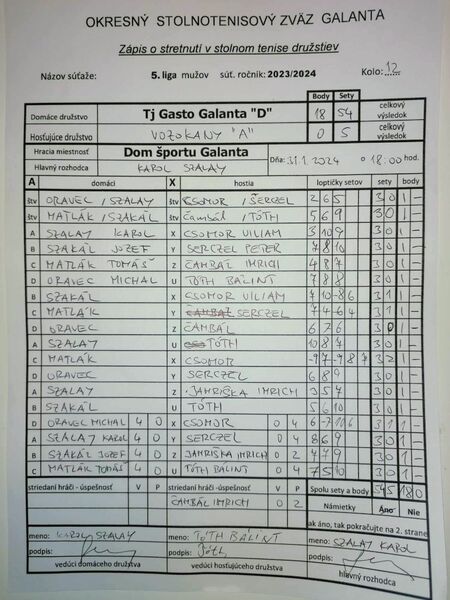 OKRESNÝ STOLNOTENISOVÝ ZVÄZ GALANTA
Zápis o stretnutí v stolnom tenise družstiev
Názov súťaže: 5. liga mužov súť. ročník: 2023/2024 Kolo: 12
Body Sety celkový výsledok
Domáce družstvo Tj Gasto Galanta "D" 18 54
Hosťujúce družstvo VOZOKANY "A" 0 5 celkový výsledok
Hracia miestnosť Dom športu Galanta Dňa: 31.1.2024 o 18:00 hod.
Hlavný rozhodca KAROL SZALAY
A domáci X hostia loptičky setov sety body
štv ORAVEC / SZALAY štv CSOMOR / ŠERCZEL 2 6 5 3 0 1 -
štv MATLÁK / SZAKÁL štv Čambál / TÓTH 5 6 9 3 0 1 -
A SZALAY KAROL X CSOMOR VILIAM 3 10 9 3 0 1 -
B SZAKÁL JOZEF Y SERCZEL PETER 7 8 10 3 0 1 -
C MATLÁK TOMÁŠ Z ČAMBÁL IMRICH 4 8 7 3 0 1 -
D ORAVEC MICHAL U TÓTH BÁLINT 7 8 8 3 0 1 -
B SZAKÁL X CSOMOR VILIAM 7 10 -8 6 3 1 1 -
C MATLÁK Y SERCZEL 7 -4 6 4 3 1 1 -
D ORAVEC Z ČAMBÁL 6 7 6 3 0 1 -
A SZALAY U TÓTH 10 8 7 3 0 1 -
C MATLÁK X CSOMOR -9 7 -7 8 7 3 2 1 -
D ORAVEC Y SERCZEL 6 8 9 3 0 1 -
A SZALAY Z JAHRIŠKA IMRICH 3 5 7 3 0 1 -
B SZAKÁL U TÓTH 5 6 10 3 0 1 -
D ORAVEC MICHAL 4 0 X CSOMOR 0 4 6 -7 10 6 3 1 1 -
A SZALAY KAROL 4 0 Y SERCZEL 0 4 8 6 9 3 0 1 -
B SZAKÁL JOZEF 4 0 Z JAHRIŠKA IMRICH 0 2 4 7 9 3 0 1 -
C MATLÁK TOMÁŠ 4 0 U TÓTH BÁLINT 0 4 7 5 10 3 0 1 -
striedaní hráči - úspešnosť V P striedaní hráči - úspešnosť V P Spolu sety a body 54 5 18 0
ČAMBÁL IMRICH 0 2 Námietky Áno Nie
ak áno, tak pokračujte na 2. strane
meno: KAROL SZALAY meno: TÓTH BÁLINT meno: SZALAY KAROL
podpis: podpis: Tóth podpis:
vedúci domáceho družstva vedúci hosťujúceho družstva hlavný rozhodca